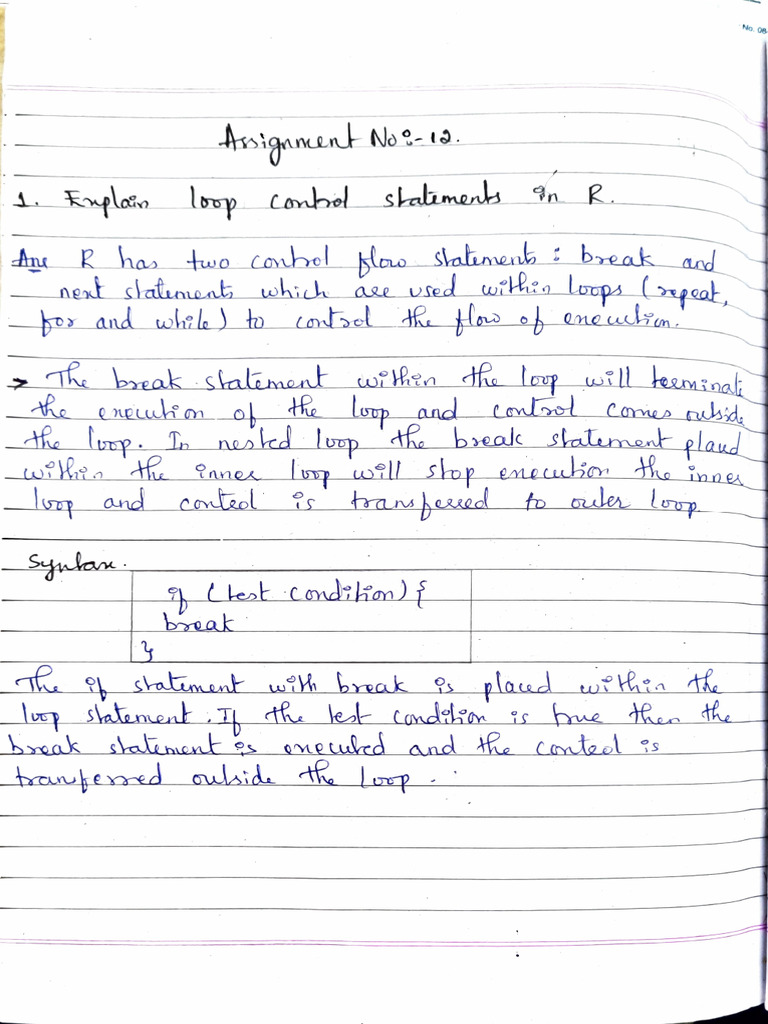 No. 08
Assignment No:-12.
1. Explain loop control statements in R.
Ans R has two control flow statements: break and
next statements which are used within loops (repeat,
for and while) to control the flow of execution.
→ The break statement within the loop will terminate
the execution of the loop and control comes outside
the loop. In nested loop the break statement placed
within the inner loop will stop execution the inner
loop and control is transferred to outer loop
Syntax.
if (test condition) {
break
}
The if statement with break is placed within the
loop statement. If the test condition is true then the
break statement is executed and the control is
transferred outside the loop.